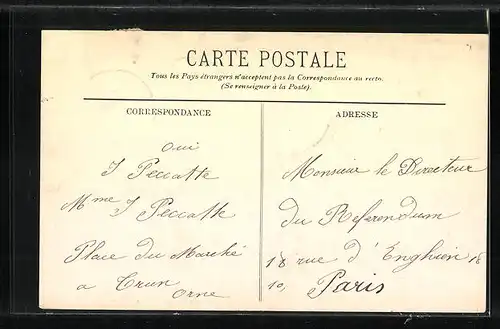 CARTE POSTALE
Tous les Pays étrangers n'acceptent pas la Correspondance au recto.
(Se renseigner à la Poste).
CORRESPONDANCE
oui
J Peccatte
Mme J Peccatte
Place du Marché
a Trun
Orne
ADRESSE
Monsieur le Directeur
du Referendum
18 rue d'Enghien 18
10, Paris